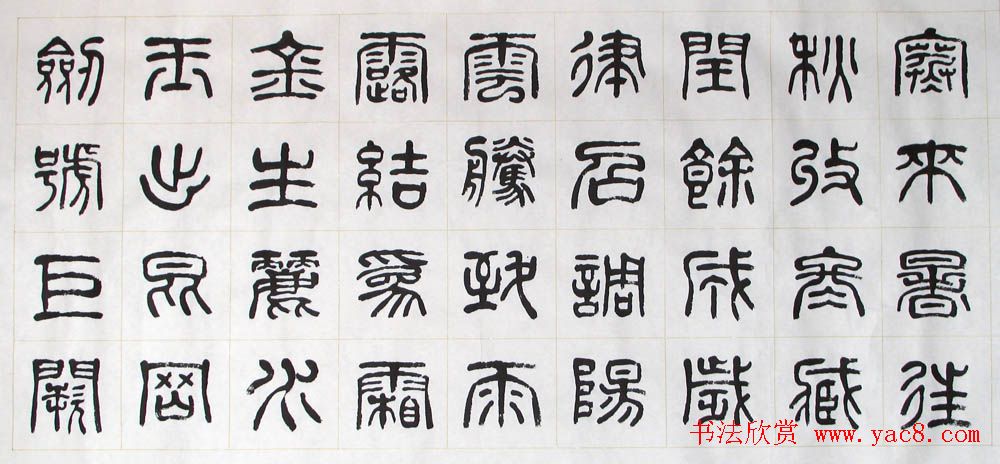 寒來暑往
秋收冬藏
閏餘成歲
律召調陽
雲騰致雨
露結爲霜
金生麗水
玉出昆岡
劍號巨闕
书法欣赏 www.yac8.com